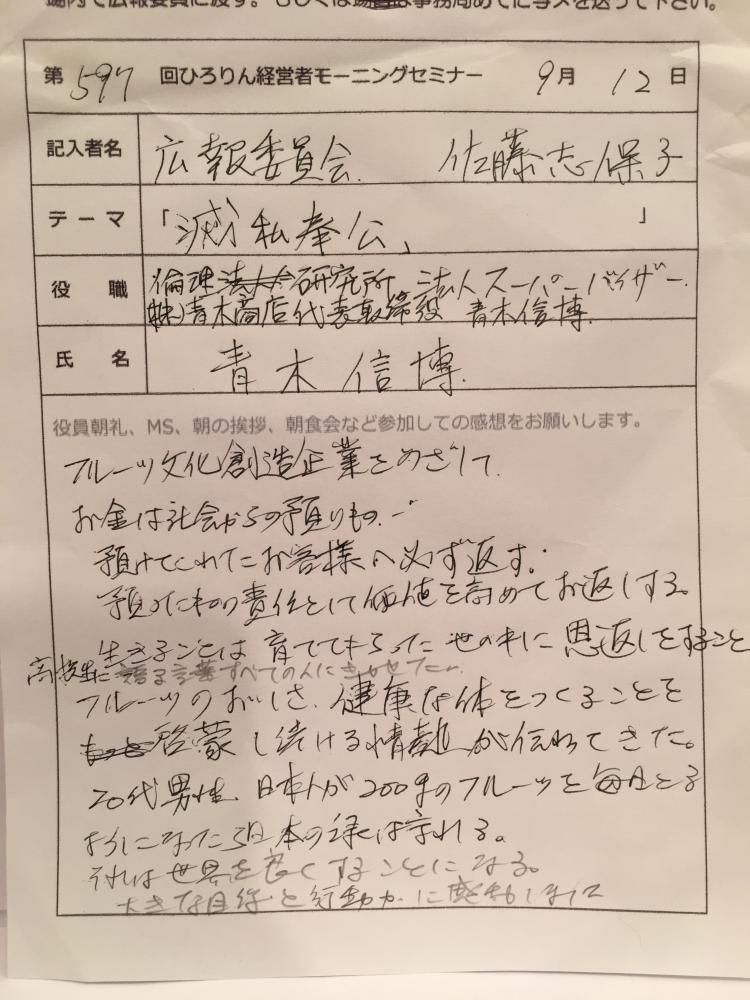 場内で広報委員に渡す。もしくは事務局あてに写メを送って下さい。
第 597 回ひろりん経営者モーニングセミナー 9月 12 日
記入者名 広報委員会 佐藤志保子
テーマ 「滅私奉公」 」
役職 倫理研究所 法人スーパーバイザー
(株)青木商店代表取締役 青木信博
氏名 青木信博
役員朝礼、MS、朝の挨拶、朝食会など参加しての感想をお願いします。
フルーツ文化創造企業をめざして
お金は社会からの預りもの
預けてくれたお客様へ必ず返す。
預ったものの責任として価値を高めてお返しする。
生きることは育ててもらった世の中に恩返しをすること
高校生に語る言葉すべての人にきかせたい
フルーツのおいしさ、健康な体をつくることを
啓蒙し続ける情熱が伝わってきた。
20代男性、日本人が200gのフルーツを毎日とる
ようになったら日本の緑は守れる。
それは世界を良くすることになる。
大きな目線と行動力に感動しました